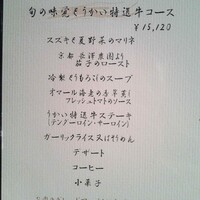 旬の味覚とうかい特選牛コース
¥15,120
スズキと夏野菜のマリネ
京都 農園より
茄子のロースト
冷製とうもろこしのスープ
オマール海老の香草炙り
フレッシュトマトのソース
うかい特選牛ステーキ
(テンダーロイン・サーロイン)
ガーリックライス又はそうめん
デザート
コーヒー
小菓子